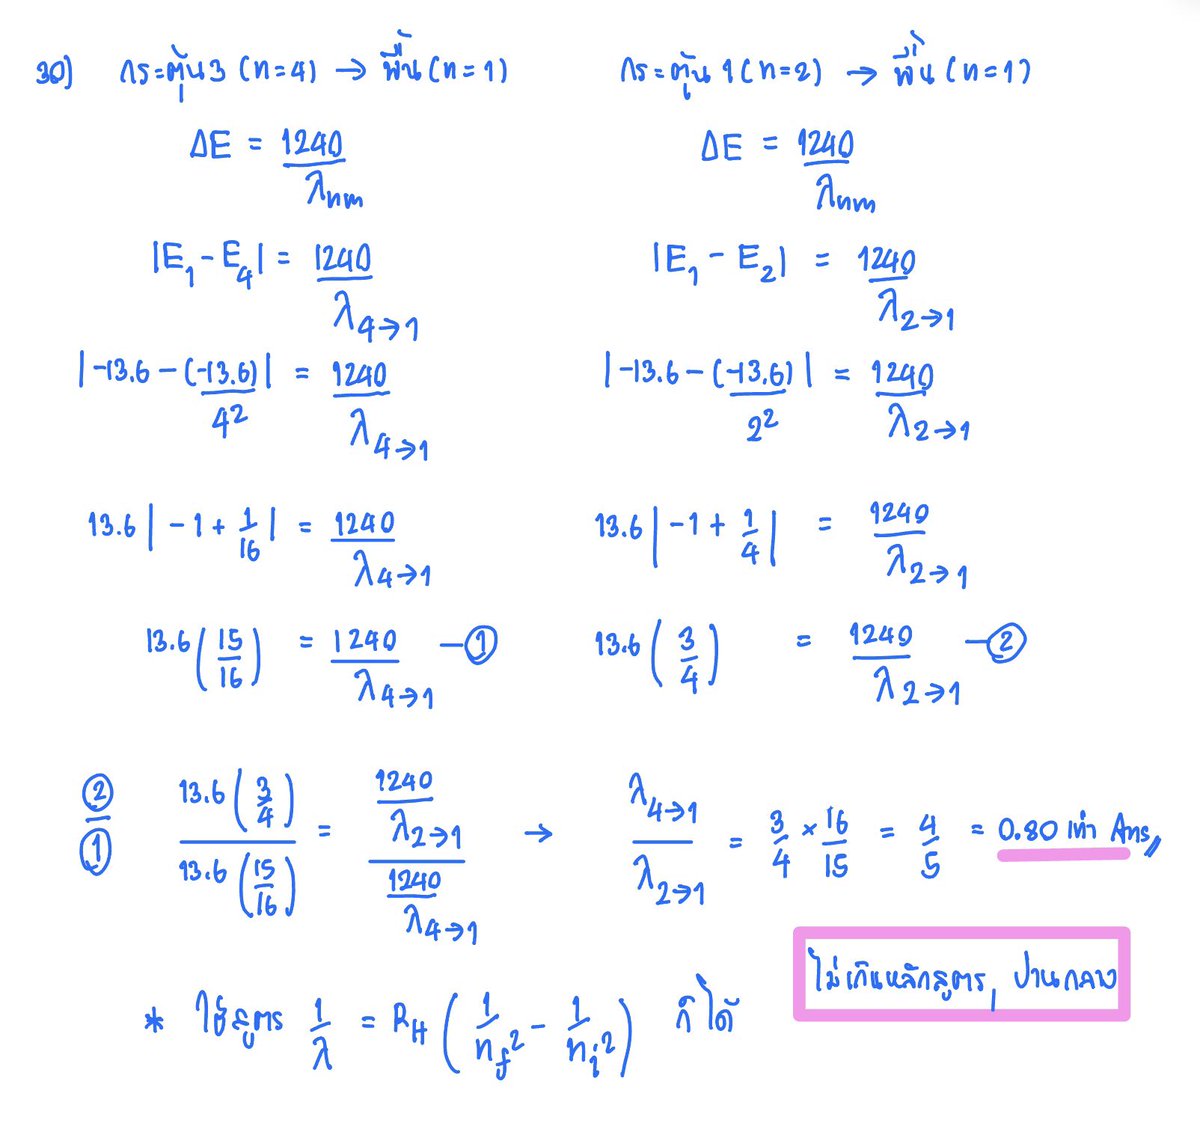 30) กระตุ้น 3 (n=4) → พื้น (n=1)
ΔE = 1240/λnm
|E₁ - E₄| = 1240/λ₄→₁
|-13.6 - (-13.6)/4²| = 1240/λ₄→₁
13.6 |-1 + 1/16| = 1240/λ₄→₁
13.6 (15/16) = 1240/λ₄→₁ —①
กระตุ้น 1 (n=2) → พื้น (n=1)
ΔE = 1240/λnm
|E₁ - E₂| = 1240/λ₂→₁
|-13.6 - (-13.6)/2²| = 1240/λ₂→₁
13.6 |-1 + 1/4| = 1240/λ₂→₁
13.6 (3/4) = 1240/λ₂→₁ —②
②/① 13.6 (3/4) / 13.6 (15/16) = (1240/λ₂→₁) / (1240/λ₄→₁) → λ₄→₁/λ₂→₁ = 3/4 × 16/15 = 4/5 = 0.80 เท่า Ans
ไม่เกินหลักสูตร, ปานกลาง
* ใช้สูตร 1/λ = R_H (1/n_f² - 1/n_i²) ก็ได้